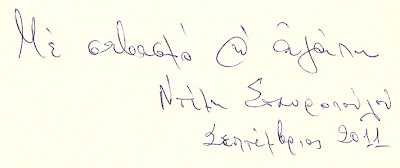 Μὲ σεβασμό @ ἀγάπη
Ντέμη Σταυροπούλου
Σεπτέμβριος 2011